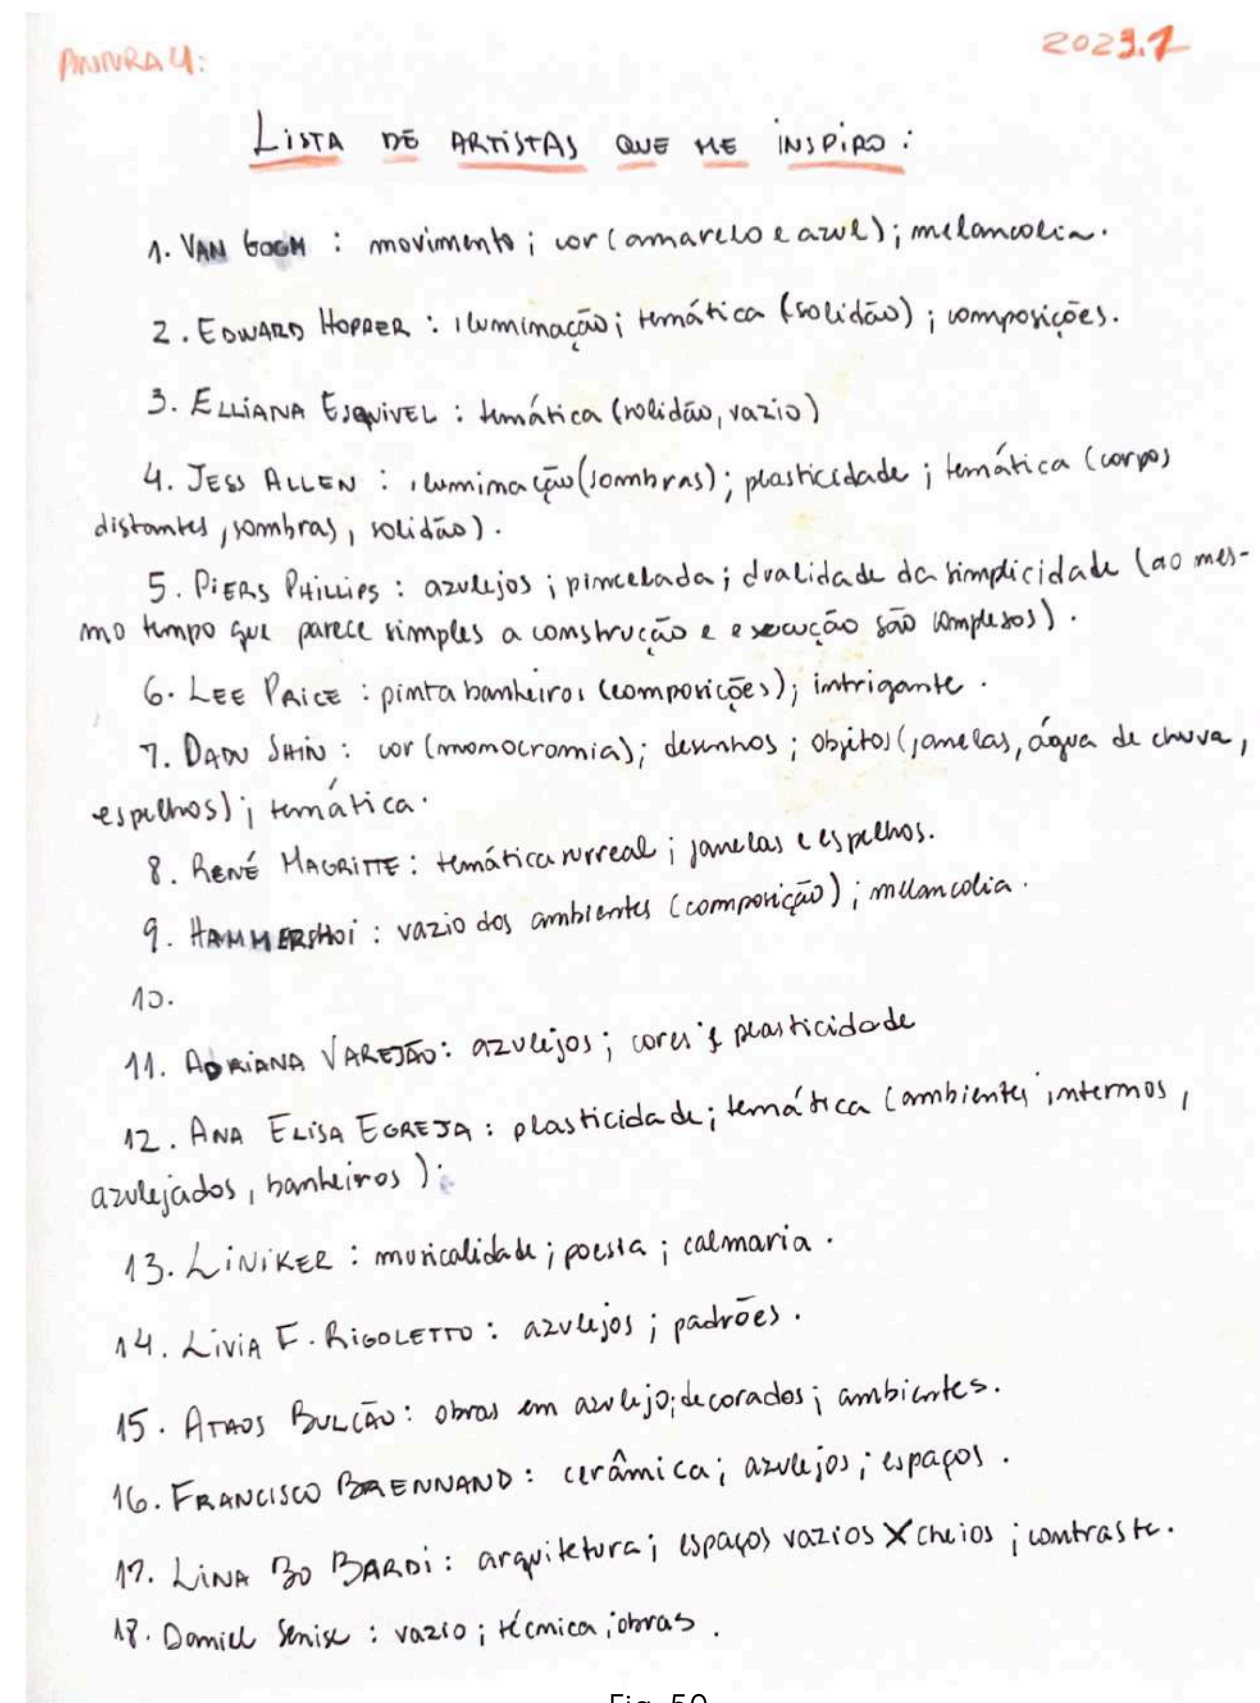 ANNRAY:
2023.1
LISTA DE ARTISTAS QUE ME INSPIRO:
1. VAN GOGH : movimento ; cor (amarelo e azul) ; melancolia.
2. EDWARD HOPPER : iluminação ; temática (solidão) ; composições.
3. ELLIANA ESQUIVEL : temática (solidão, vazio)
4. JESS ALLEN : iluminação (sombras) ; plasticidade ; temática (corpos
distantes, sombras, solidão).
5. PIERS PHILLIPS : azulejos ; pincelada ; dualidade da simplicidade (ao mes-
mo tempo que parece simples a construção e execução são complexos).
6. LEE PRICE : pinta banheiros (composições) ; intrigante.
7. DADU SHIN : cor (monocromia) ; desenhos ; objetos (janelas, água de chuva,
espelhos) ; temática.
8. RENÉ MAGRITTE : temática surreal ; janelas e espelhos.
9. HAMMERSHOI : vazio dos ambientes (composição) ; melancolia.
10.
11. ADRIANA VAREJÃO : azulejos ; cores ; plasticidade
12. ANA ELISA EGREJA : plasticidade ; temática (ambientes internos,
azulejados, banheiros).
13. LINIKER : musicalidade ; poesia ; calmaria.
14. LIVIA F. RIGOLETTO : azulejos ; padrões.
15. ATAOS BULCÃO : obras em azulejo ; decorados ; ambientes.
16. FRANCISCO BRENNAND : cerâmica ; azulejos ; espaços.
17. LINA BO BARDI : arquitetura ; espaços vazios X cheios ; contraste.
18. Daniel Senise : vazio ; técnica ; obras.
Fig. 50